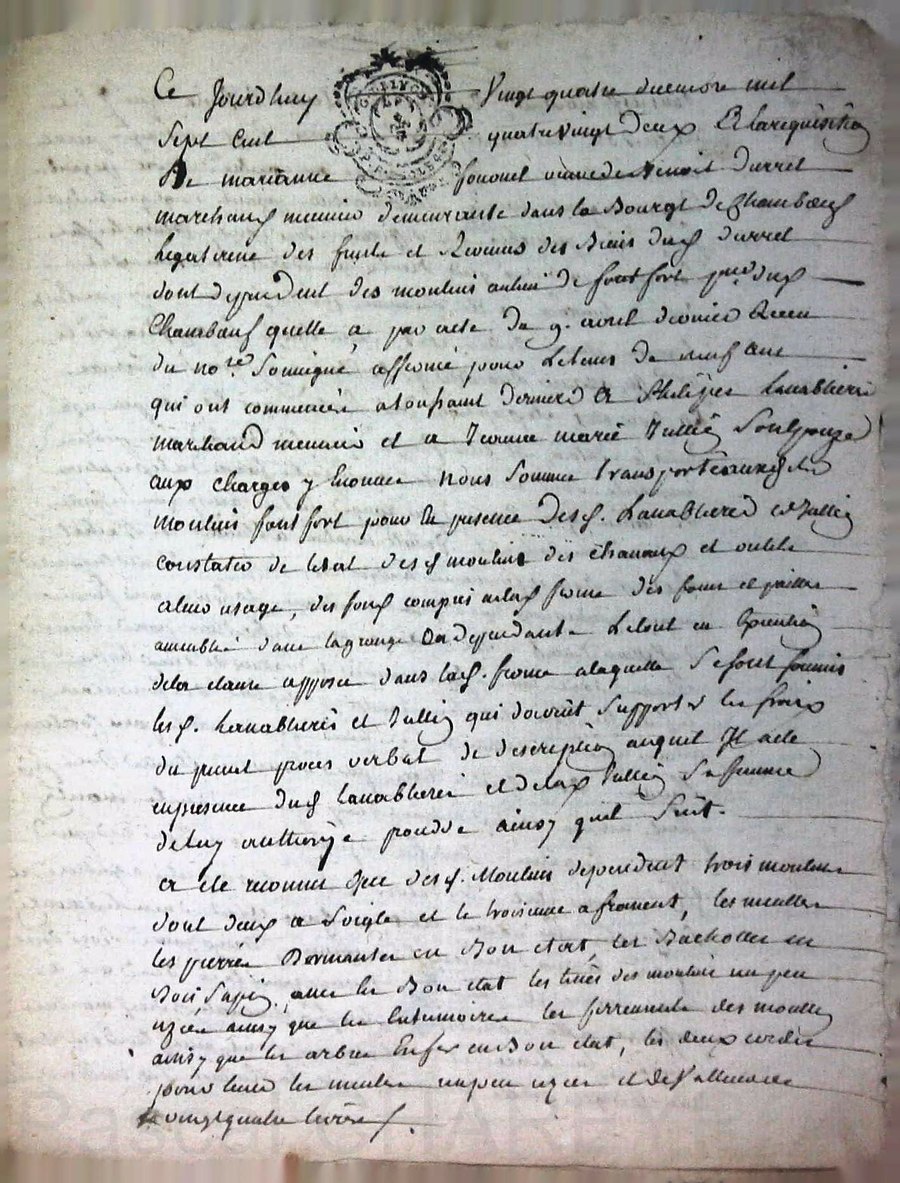 Ce Jourdhuy Vingt quatre decembre mil
Sept Cent quatrevingt deux A la requisition
De marianne fouonel veuve de Benoit durret
marchand meunier demeurante dans le Bourgt de Chambœuf
legatrice des fruits et Revenus des Biens dud durret
dont dependent des moulins de font fort dud
Chambœuf quelle a par acte du 9. avril dernier Receu
du no.re Soussigné affermé pour le tems de neuf ans
qui ont commencés a toussaint dernier A Philippes Lanablierie
marchand meunier et a marie Jullien Son Epouze
aux charges y Enoncés nous Sommes transportés
moulins font fort pour en presence desd. Lanablierie et Jullien
constater de letat desd moulins des chanaux et outils
a leur usage, des fonds compris aud ferme des foins et pailles
dans la grange En dependante Le tout en Execution
de la clause apposée dans lad. ferme a laquelle Se sont soumis
lesd. Lanablierie et Jullien qui doivent Supporter les fraix
du present proces verbal de description auquel Il a ete
en presence dud Lanablierie et de lad Jullien Sa femme
de luy authorizée procédé ainsy quil Suit.
a ete reconnu que desd. Moulins dependent trois moulins
dont deux a Soigle et le troisieme a froment, les meulles
les pierres Dormantes en Bon etat, les Bacholles en
Bois Sapin en Bon etat les des moulins un peu
uzées ainsy que les les ferrements des moulins
ainsy que les arbres En fer en Bon etat, les deux cordes
pour lever les meules un peu uzées et de Valleur de
vingt quatre livres